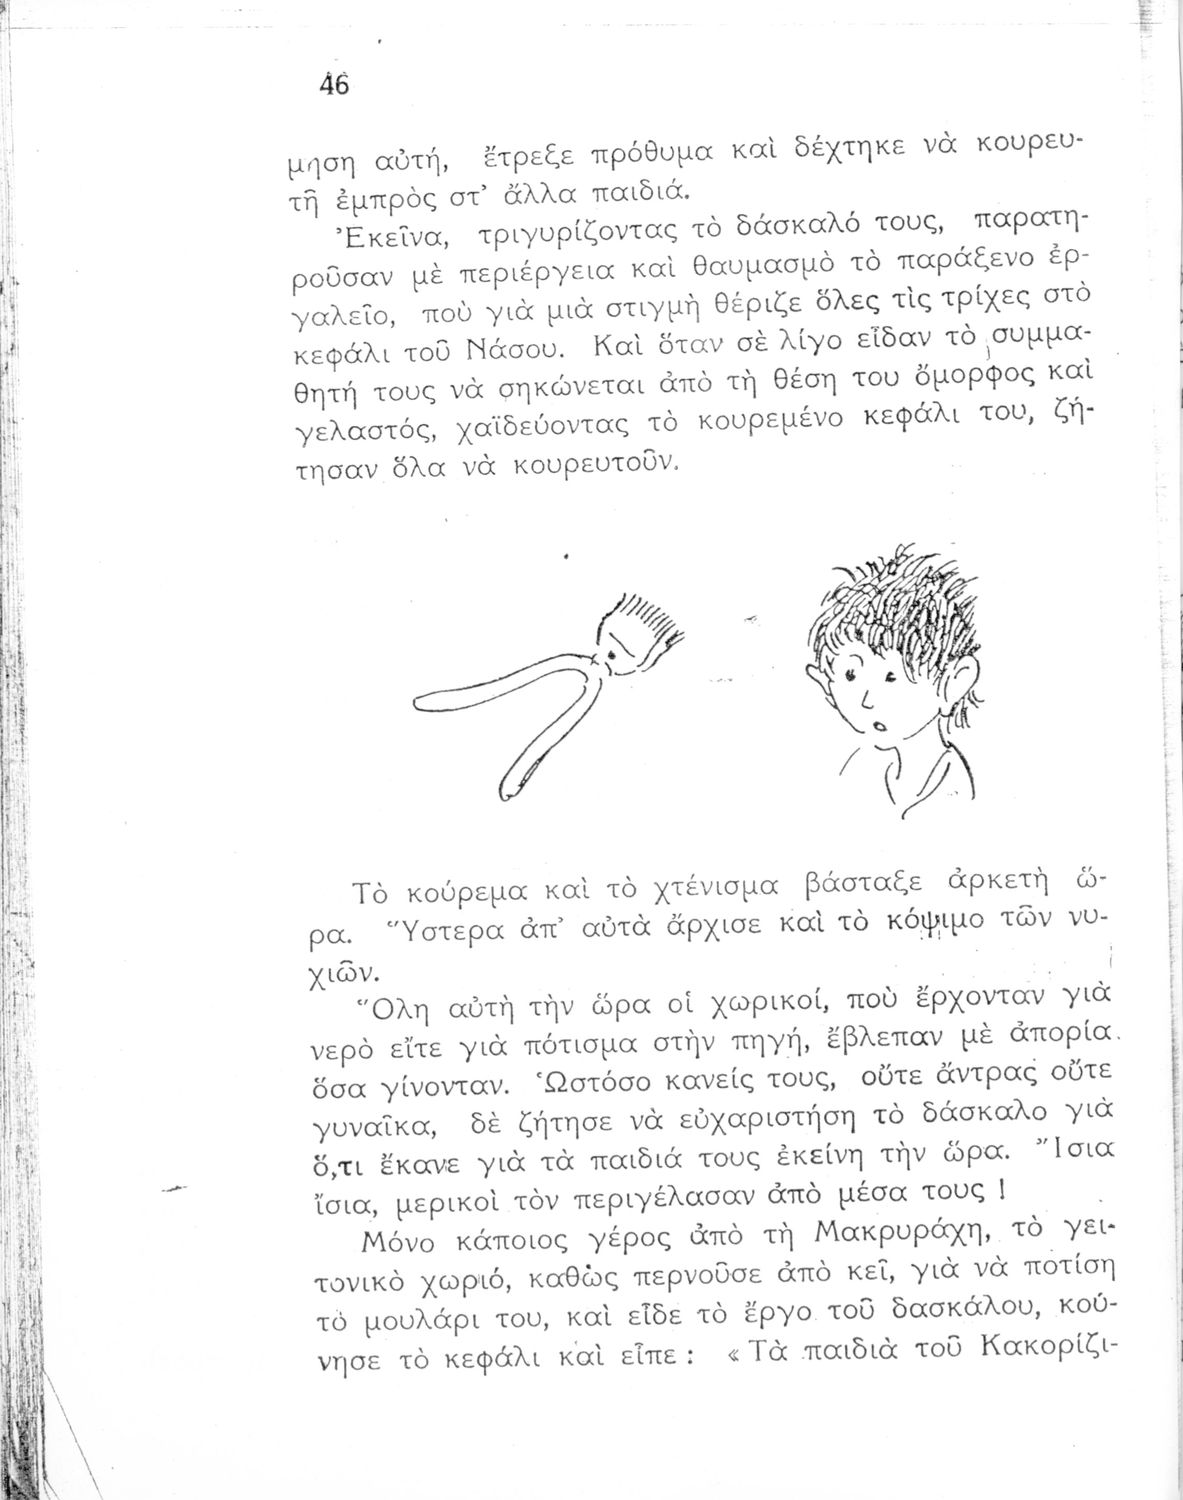 46
μηση αὐτή, ἔτρεξε πρόθυμα καὶ δέχτηκε νὰ κουρευ-
τῆ ἐμπρὸς στ’ ἄλλα παιδιά.
Ἐκεῖνα, τριγυρίζοντας τὸ δάσκαλό τους, παρατη-
ροῦσαν μὲ περιέργεια καὶ θαυμασμὸ τὸ παράξενο ἐρ-
γαλεῖο, ποὺ γιὰ μιὰ στιγμὴ θέριζε ὅλες τὶς τρίχες στὸ
κεφάλι τοῦ Νάσου. Καὶ ὅταν σὲ λίγο εἶδαν τὸ συμμα-
θητή τους νὰ σηκώνεται ἀπὸ τὴ θέση του ὄμορφος καὶ
γελαστός, χαϊδεύοντας τὸ κουρεμένο κεφάλι του, ζή-
τησαν ὅλα νὰ κουρευτοῦν.
Τὸ κούρεμα καὶ τὸ χτένισμα βάσταξε ἀρκετὴ ὥ-
ρα. Ὕστερα ἀπ’ αὐτὰ ἄρχισε καὶ τὸ κόψιμο τῶν νυ-
χιῶν.
Ὅλη αὐτὴ τὴν ὥρα οἱ χωρικοί, ποὺ ἔρχονταν γιὰ
νερὸ εἴτε γιὰ πότισμα στὴν πηγή, ἔβλεπαν μὲ ἀπορία
ὅσα γίνονταν. Ὡστόσο κανείς τους, οὔτε ἄντρας οὔτε
γυναῖκα, δὲ ζήτησε νὰ εὐχαριστήση τὸ δάσκαλο γιὰ
ὅ,τι ἔκανε γιὰ τὰ παιδιά τους ἐκείνη τὴν ὥρα. Ἴσια
ἴσια, μερικοὶ τὸν περιγέλασαν ἀπὸ μέσα τους !
Μόνο κάποιος γέρος ἀπὸ τὴ Μακρυράχη, τὸ γει-
τονικὸ χωριό, καθὼς περνοῦσε ἀπὸ κεῖ, γιὰ νὰ ποτίση
τὸ μουλάρι του, καὶ εἶδε τὸ ἔργο τοῦ δασκάλου, κού-
νησε τὸ κεφάλι καὶ εἶπε : « Τὰ παιδιὰ τοῦ Κακορίζι-